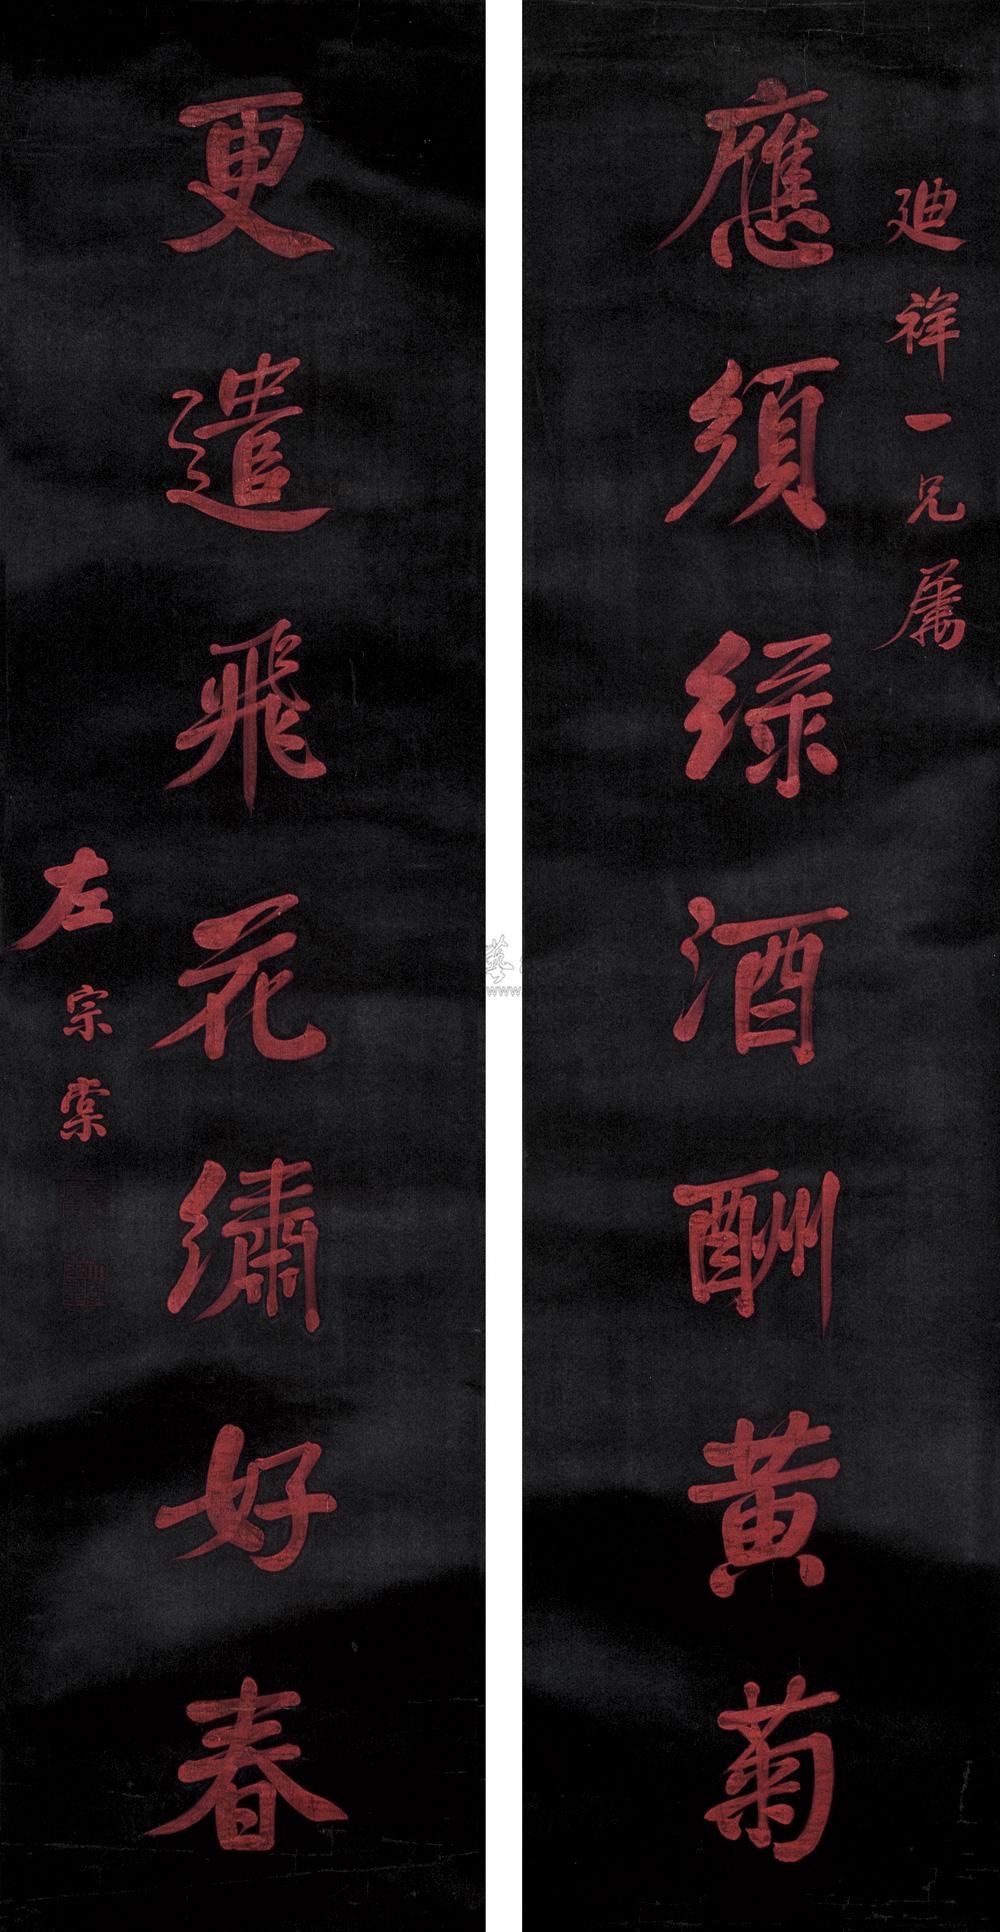 廸祥一兄屬
應須綠酒酬黃菊
更遣飛花繡好春
左宗棠